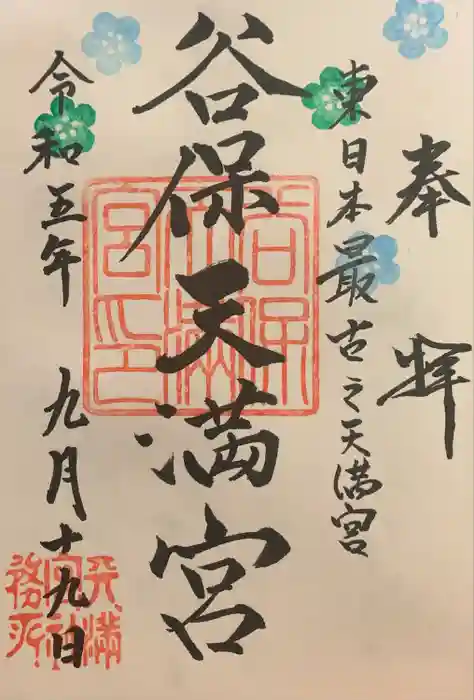 奉拝
東日本最古之天満宮
谷保天満宮
令和五年 九月十九日
谷保天満宮印
天満宮社務所